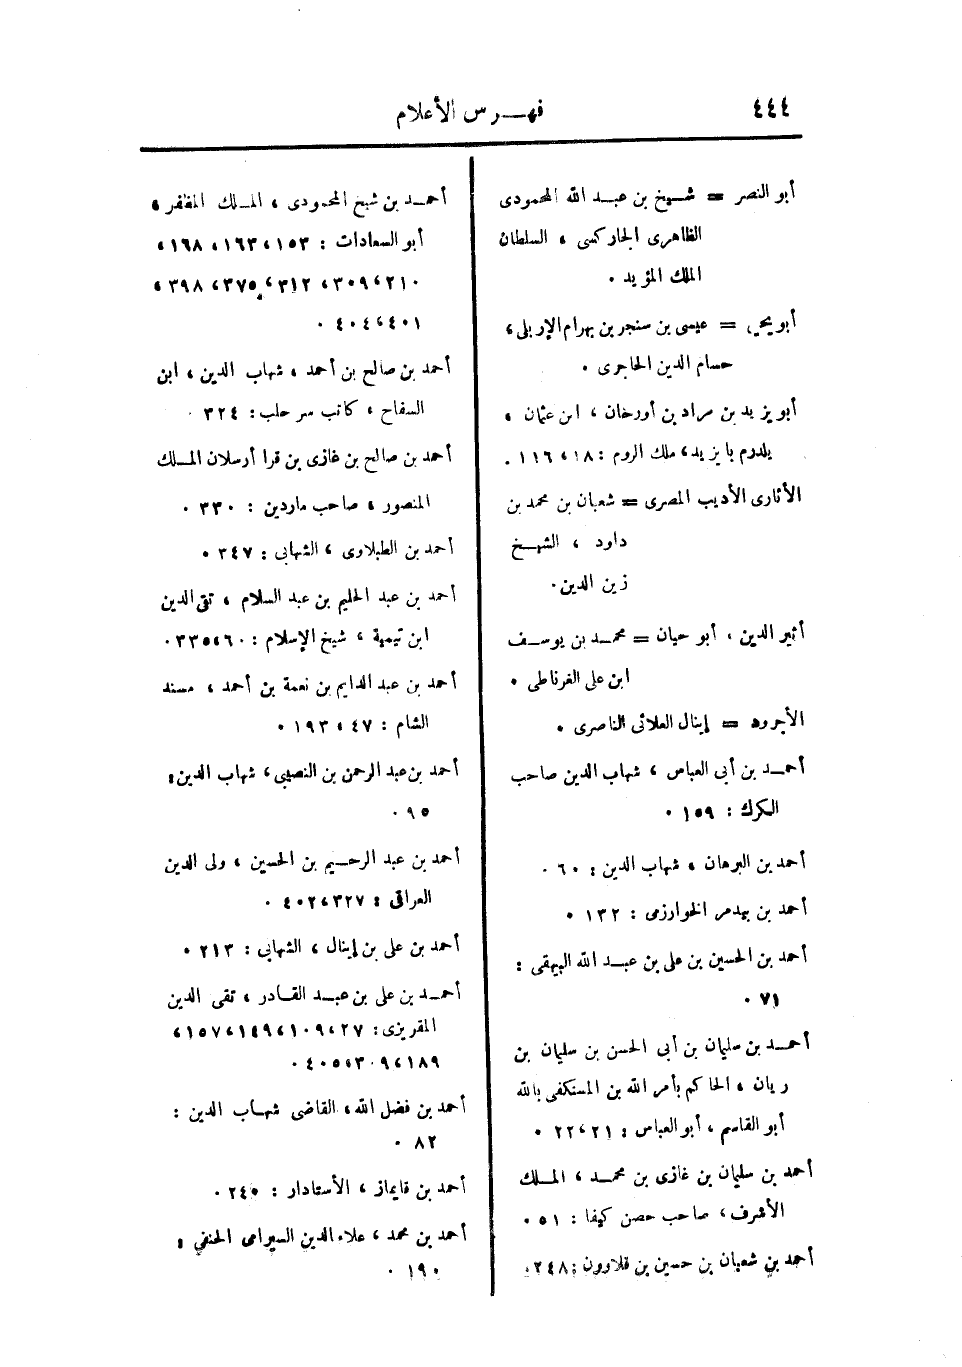 ٤٤٤
فهـرس الأعلام
أبو النصر = شـيخ بن عبـد الله المحمودى
الظاهرى الجاركسى ، السلطان
الملك المؤيد .
أبو يحيى = عيسى بن سنجر بن بهرام الإربلى،
حسام الدين الحاجرى .
أبو يزيد بن مراد بن أورخان ، ابن عثمان ،
يلدرم بايزيد، ملك الروم : ١٨، ١١٦ .
الأثارى الأديب المصرى = شعبان بن محمد بن
داود ، الشيـخ
زين الدين.
أثير الدين ، أبو حيان = محمـد بن يوسـف
ابن على الغرناطى .
الأجرود = إينال العلائى الناصرى .
أحمـد بن أبى العباس ، شهاب الدين صاحب
الكرك : ١٥٩ .
أحمد بن البرهان ، شهاب الدين : ٦٠ .
أحمد بن بيدمر الخوارزمى : ١٣٢ .
أحمد بن الحسين بن على بن عبـد الله البيهقى :
٧١ .
أحمـد بن سليمان بن أبى الحسن بن سليمان بن
ريان ، الحاكم بأمر الله بن المستكفى بالله
أبو القاسم ، أبو العباس : ٢١، ٢٢ .
أحمد بن سليمان بن غازى بن محمـد ، المـلك
الأشرف، صاحب حصن كيفا : ٥١ .
أحمد بن شعبان بن حسين بن قلاوون : ٢٤٨.
أحمـد بن شيخ المحمودى ، المـلك المظفر ،
أبو السعادات : ١٥٣، ١٦٣، ١٦٨،
٢١٠، ٣٠٩، ٣١٢، ٣٧٥، ٣٩٨،
٤٠١، ٤٠٤ .
أحمد بن صالح بن أحمد ، شهاب الدين ، ابن
السفاح ، كاتب سر حلب: ٣٢٤ .
أحمد بن صالح بن غازى بن قرا أرسلان المـلك
المنصور ، صاحب ماردين : ٣٣٠ .
أحمد بن الطبلاوى ، الشهابى : ٣٤٧ .
أحمد بن عبد الحليم بن عبد السلام ، تقى الدين
ابن تيمية ، شيخ الإسلام : ٦٠، ٣٣٥.
أحمد بن عبد الدايم بن نعمة بن أحمد ، مسند
الشام : ٤٧، ١٩٣ .
أحمد بن عبد الرحمن بن النصيبى، شهاب الدين:
٩٥ .
أحمد بن عبد الرحـيم بن الحسين ، ولى الدين
العراقى : ٣٢٧، ٤٠٢ .
أحمد بن على بن إينال ، الشهابى : ٢١٣ .
أحمـد بن على بن عبـد القـادر ، تقى الدين
المقريزى : ٢٧، ١٠٩، ١٤٩، ١٥٧،
١٨٩، ٣٠٩، ٤٠٥ .
أحمد بن فضل الله، القاضى شهـاب الدين :
٨٢ .
أحمد بن قايماز ، الأستادار : ٢٤٥ .
أحمد بن محمد ، علاء الدين السيرامى الحنفي :
١٩٠ .